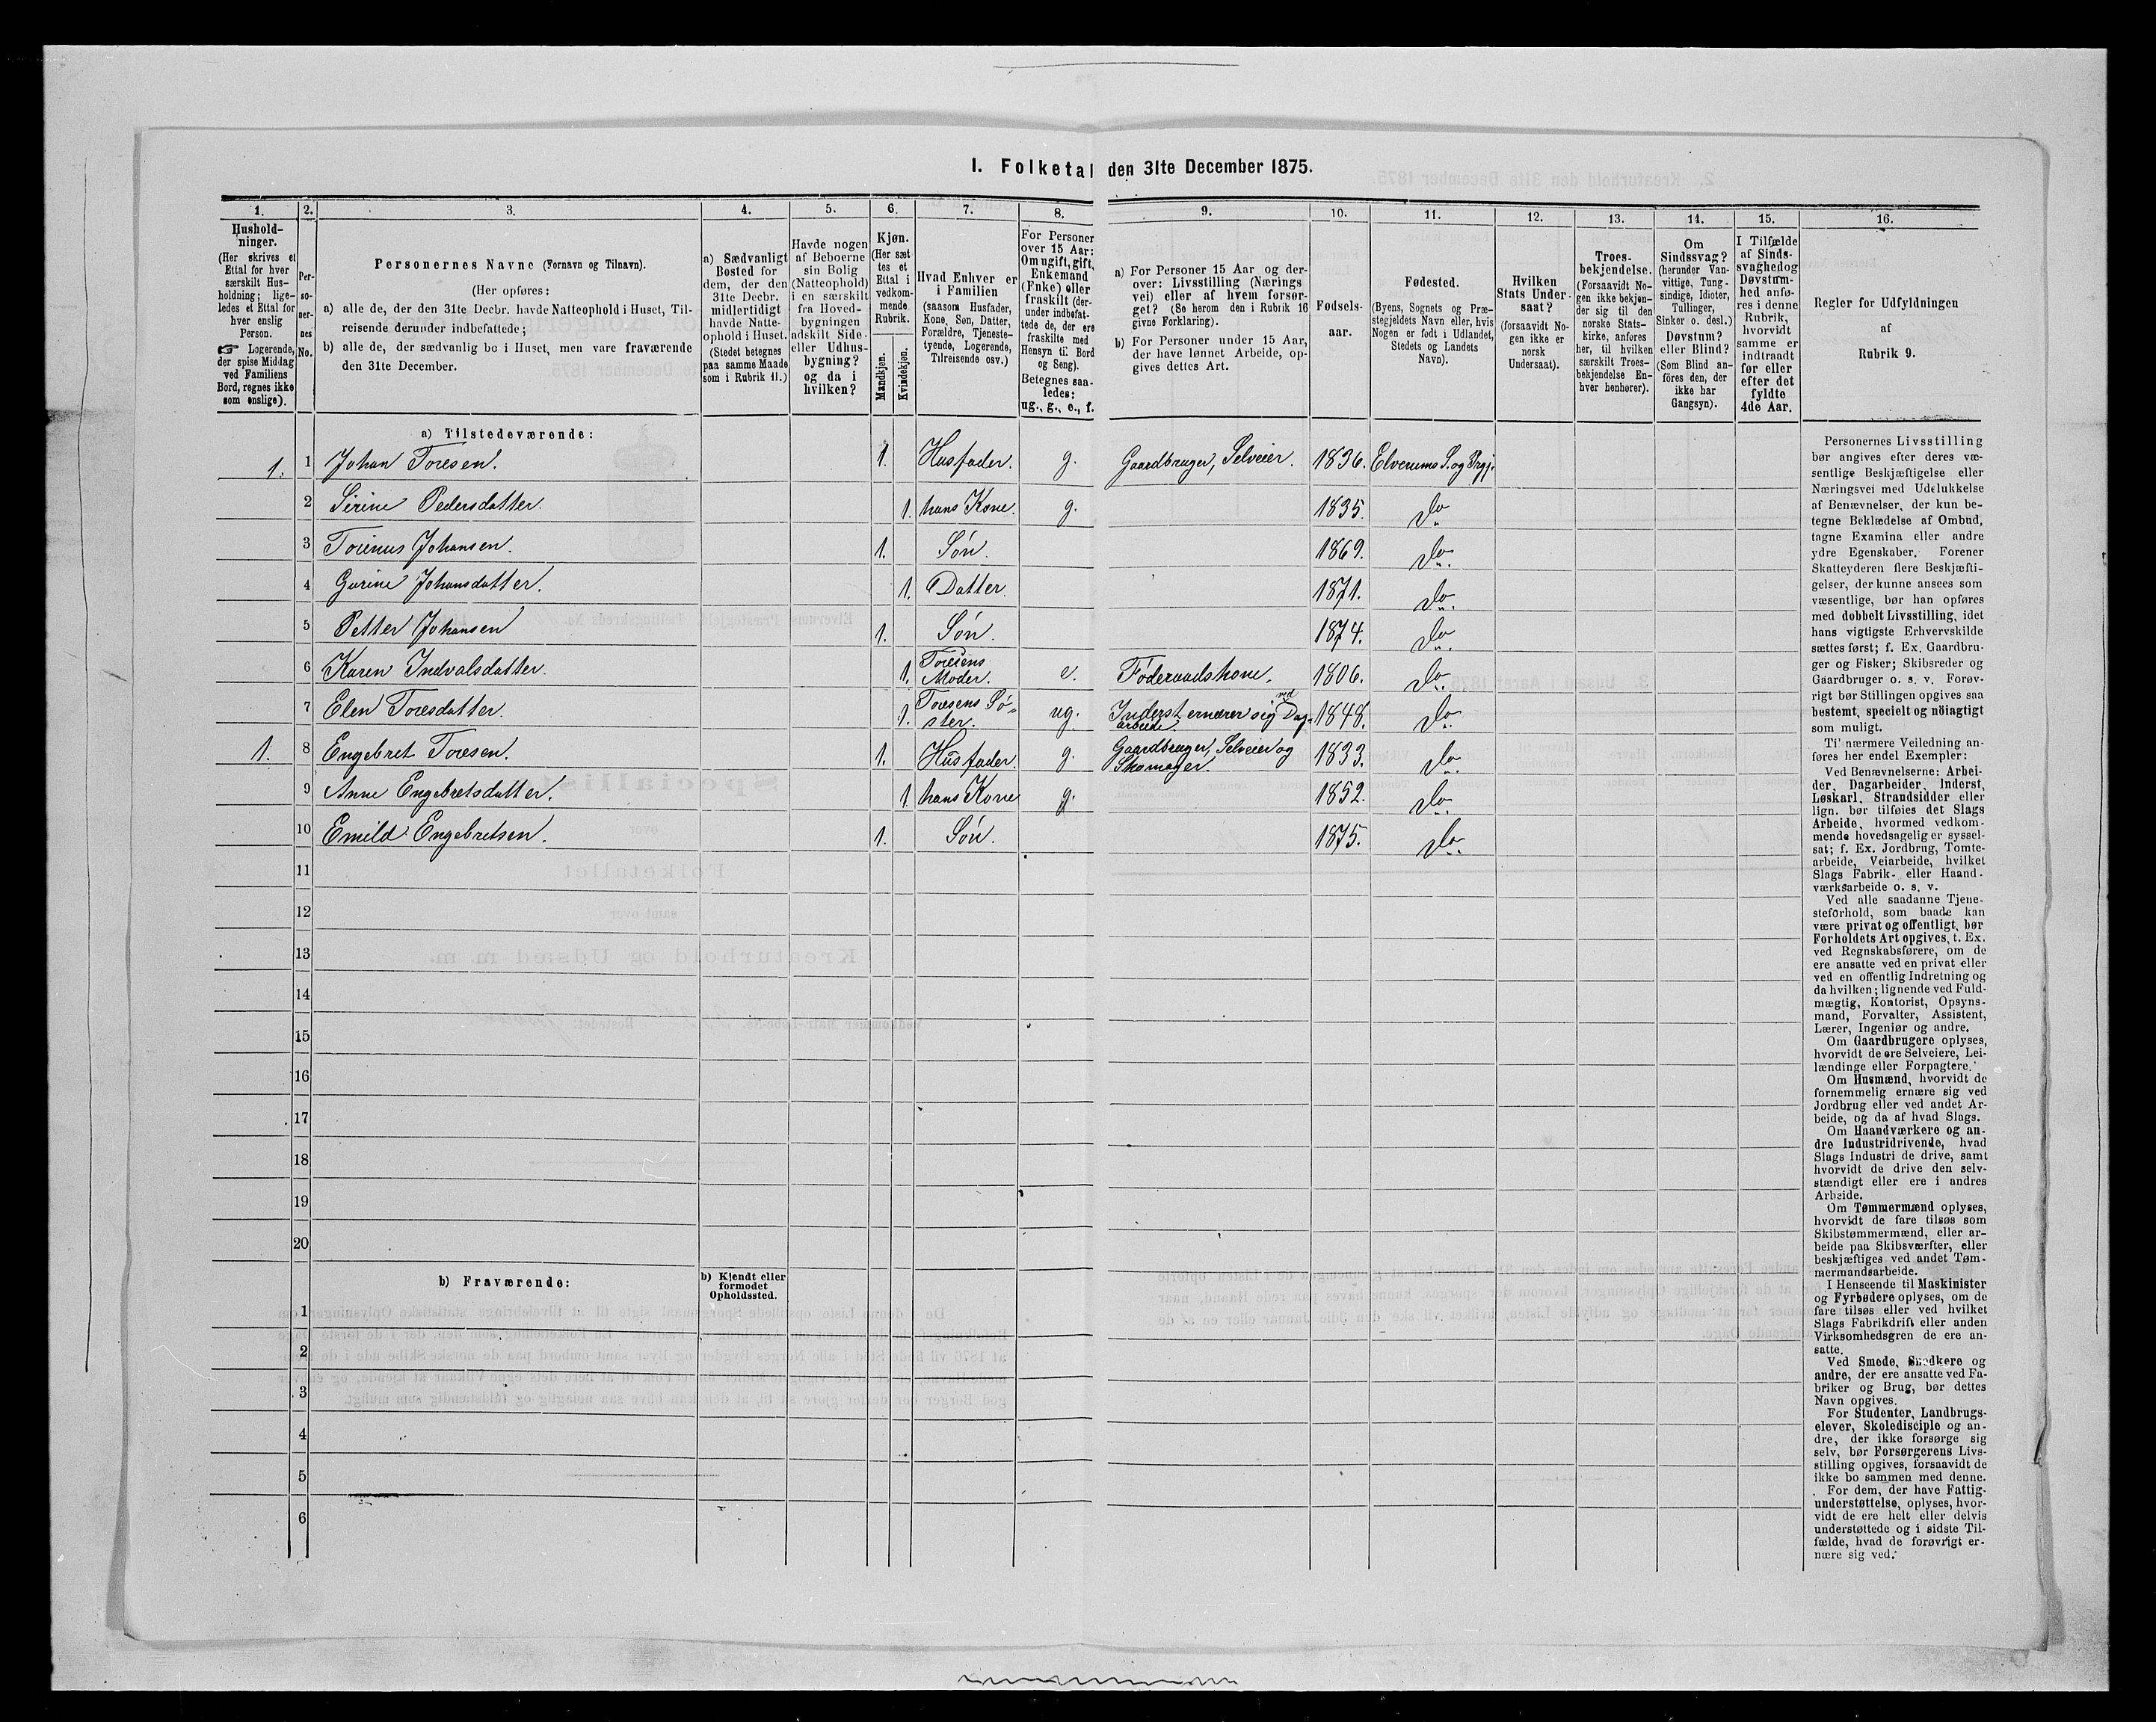 I. Folketal den 31te December 1875.
1. 2. 3. 4. 5. 6. 7. 8. 9. 10. 11. 12. 13. 14. 15. 16.
Hushold-
ninger.
(Her skrives et
Ettal for hver
særskilt Hus-
holdning; lige-
ledes et Ettal for
hver enslig
Person.
☞ Logerende,
der spise Middag
ved Familiens
Bord, regnes ikke
som enslige).
Per-
so-
ner-
nes
No.
Personernes Navne (Fornavn og Tilnavn).
(Her opføres:
a) alle de, der den 31te Decbr. havde Natteophold i Huset, Til-
reisende derunder indbefattede;
b) alle de, der sædvanlig bo i Huset, men vare fraværende
den 31te December.
a) Sædvanligt
Bosted for
dem, der den
31te Decbr.
midlertidigt
havde Natte-
ophold i Huset.
(Stedet betegnes
paa samme Maade
som i Rubrik 11.)
Havde nogen
af Beboerne
sin Bolig
(Natteophold)
i en særskilt
fra Hoved-
bygningen
adskilt Side-
eller Udhus-
bygning?
og da i
hvilken?
Kjøn.
(Her sæt
tes et
Ettal i
vedkom-
mende
Rubrik.
Mandkjøn.
Kvindekjøn.
Hvad Enhver er
i Familien
(saasom Husfader,
Kone, Søn, Datter,
Forældre, Tjeneste-
tyende, Logerende,
Tilreisende osv.)
For Personer
over 15 Aar:
Om ugift, gift,
Enkemand
(Enke) eller
fraskilt (der-
under indbefat-
tede de, der ere
fraskilte med
Hensyn til Bord
og Seng).
Betegnes saa-
ledes:
ug., g., e., f.
a) For Personer 15 Aar og der-
over: Livsstilling (Nærings
vei) eller af hvem forsør-
get? (Se herom den i Rubrik 16
givne Forklaring).
b) For Personer under 15 Aar,
der have lønnet Arbeide, op-
gives dettes Art.
Fødsels-
aar.
Fødested.
(Byens, Sognets og Præ-
stegjeldets Navn eller, hvis
Nogen er født i Udlandet,
Stedets og Landets
Navn).
Hvilken
Stats Under-
saat?
(forsaavidt No-
gen ikke er
norsk
Undersaat).
Troes-
bekjendelse.
(Forsaavidt No-
gen ikke bekjen-
der sig til den
norske Stats-
kirke, anføres
her, til hvilken
særskilt Troes-
bekjendelse En-
hver henhører).
Om
Sindssvag?
(herunder Van-
vittige, Tung-
sindige, Idioter,
Tullinger,
Sinker o. desl.)
Døvstum?
eller Blind?
(Som Blind an-
føres den, der
ikke har
Gangsyn).
I Tilfælde
af Sinds-
svaghed og
Døvstum-
hed anfø-
res i denne
Rubrik,
hvorvidt
samme er
indtraadt
før eller
efter det
fyldte
4de Aar.
Regler for Udfyldningen
af
Rubrik 9.
a) Tilstedeværende:
1. 1 Johan Toresen. 1. Husfader. g. Gaardbruger, Selveier. 1836. Elverums S. og Prgj.
2 Sirine Pedersdatter. 1. hans Kone. g. 1835. Do
3 Torinus Johansen. 1. Søn. 1869. Do.
4 Gurine Johansdatter. 1. Datter. 1871. Do.
5 Petter Johansen 1. Søn. 1874. Do.
6 Karen Indvalsdatter. 1. Toresens Moder. e. Føderaadskone. 1806. Do.
7 Elen Toresdatter. 1. Toresens Sø-ster. ug. Inderst ernærer sig ved Dag-arbeide. 1848. Do.
1. 8 Engebret Toresen. 1. Husfader. g. Gaardbruger, Selveier og Skomager. 1833. Do.
9 Anne Engebretsdatter. 1. hans Kone g. 1852. Do.
10 Emild Engebretsen. 1. Søn. 1875. Do.
11
12
13
14
15
16
17
18
19
20
b) Fraværende:
b) Kjendt eller
formodet
Opholdssted.
1
2
3
4
5
6
Personernes Livsstilling
bør angives efter deres væ-
sentlige Beskjæftigelse eller
Næringsvei med Udelukkelse
af Benævnelser, der kun be-
tegne Beklædelse af Ombud,
tagne Examina eller andre
ydre Egenskaber. Forener
Skatteyderen flere Beskjæfti-
gelser, der kunne ansees som
væsentlige, bør han opføres
med dobbelt Livsstilling, idet
hans vigtigste Erhvervskilde
sættes først; f. Ex. Gaardbru-
ger og Fisker; Skibsreder og
Gaardbruger o. s. v. Forøv-
rigt bør Stillingen opgives saa
bestemt, specielt og nöiagtigt
som muligt.
Til nærmere Veiledning an-
føres her endel Exempler:
Ved Benævnelserne: Arbei-
der, Dagarbeider, Inderst,
Løskarl, Strandsidder eller
lign. bør tilføies det Slags
Arbeide, hvormed vedkom-
mende hovedsagelig er syssel-
sat; f. Ex. Jordbrug, Tomte-
arbeide, Veiarbeide, hvilket
Slags Fabrik- eller Haand-
værksarbeide o. s. v.
Ved alle saadanne Tjene-
steforhold, som baade kan
være privat og offentligt, bør
Forholdets Art opgives, t. Ex.
ved Regnskabsførere, om de
ere ansatte ved en privat eller
ved en offentlig Indretning og
da hvilken; lignende ved Fuld-
mægtig, Kontorist, Opsyns-
mand, Forvalter, Assistent,
Lærer, Ingeniør og andre.
Om Gaardbrugere oplyses,
hvorvidt de ere Selveiere, Lei-
lændinge eller Forpagtere.
Om Husmænd, hvorvidt de
fornemmelig ernære sig ved
Jordbrug eller ved andet Ar-
beide, og da af hvad Slags.
Om Haandværkere og an-
dre Industridrivende, hvad
Slags Industri de drive, samt
hvorvidt de drive den selv-
stændigt eller ere i andres
Arbeide.
Om Tømmermænd oplyses,
hvorvidt de fare tilsøs som
Skibstømmermænd, eller ar-
beide paa Skibsværfter, eller
beskjæftiges ved andet Tøm-
mermandsarbeide.
I Henseende til Maskinister
og Fyrbødere oplyses, om de
fare tilsøs eller ved hvilket
Slags Fabrikdrift eller anden
Virksomhedsgren de ere an-
satte.
Ved Smede, Snedkere og
andre, der ere ansatte ved Fa-
briker og Brug, bør dettes
Navn opgives.
For Studenter, Landbrugs-
elever, Skoledisciple og an-
dre, der ikke forsørge sig
selv, bør Forsørgerens Livs-
stilling opgives, forsaavidt de
ikke bo sammen med denne.
For dem, der have Fattig-
understøttelse, oplyses, hvor-
vidt de ere helt eller delvis
understøttede og i sidste Til-
fælde, hvad de forøvrigt er-
nære sig ved.